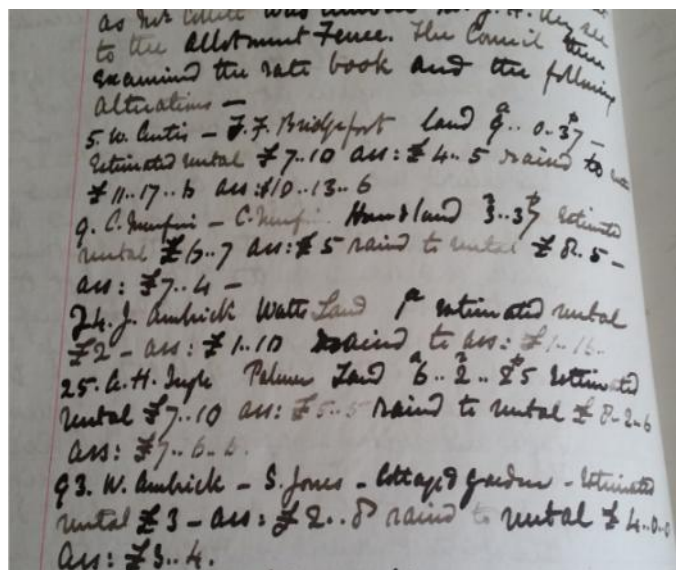 as Mr was J. H.
to the Allotment Fence. The Council then
examined the rate book and the following
alterations —
5. W. Curtis — J. F. Bridgefoot land 9 a .. 0 .. 37 p —
Estimated rental £7..10 ass: £4..5 raised to
£11..17..6 ass: £10..13..6
9. C. — C. House & land 3 r .. 37 p Estimated
rental £6..7 ass: £5 raised to rental £8..5 —
ass: £7..4 —
24. J. Ambrick Watts Land 1 a estimated rental
£2 — ass: £1..10 raised to ass: £1..16..
25. A. H. Ingle Palmer Land 6 a .. 2 r .. 25 p Estimated
rental £7..10 ass: £5..5 raised to rental £8..2..6
ass: £7..6..6.
93. W. Ambrick — S. Jones — Cottage & garden — Estimated
rental £3 — ass: £2..8 raised to rental £4..0..0
Ass: £3..4.